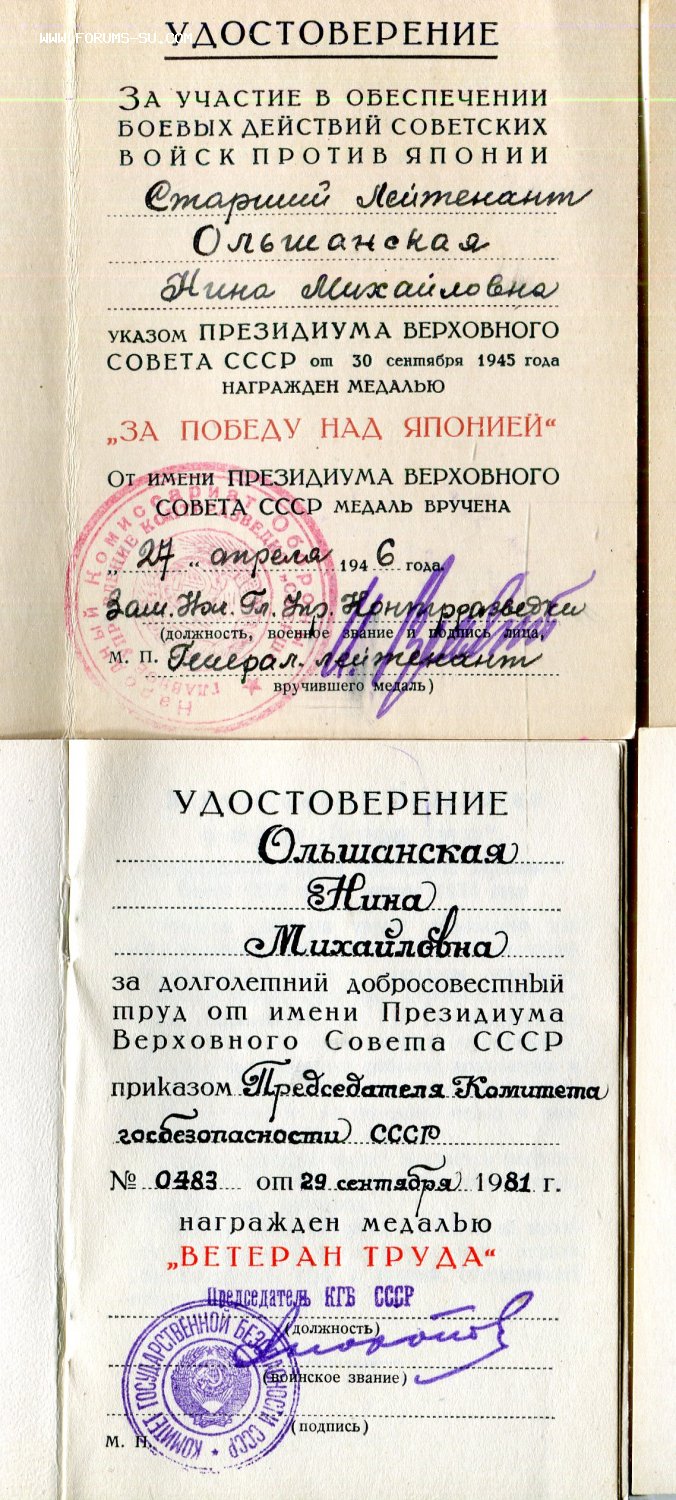 WWW.FORUMS-SU.COM
УДОСТОВЕРЕНИЕ
ЗА УЧАСТИЕ В ОБЕСПЕЧЕНИИ
БОЕВЫХ ДЕЙСТВИЙ СОВЕТСКИХ
ВОЙСК ПРОТИВ ЯПОНИИ
Старший Лейтенант
Ольшанская
Нина Михайловна
УКАЗОМ ПРЕЗИДИУМА ВЕРХОВНОГО
СОВЕТА СССР от 30 сентября 1945 года
НАГРАЖДЕН МЕДАЛЬЮ
„ЗА ПОБЕДУ НАД ЯПОНИЕЙ“
ОТ ИМЕНИ ПРЕЗИДИУМА ВЕРХОВНОГО
СОВЕТА СССР МЕДАЛЬ ВРУЧЕНА
„27„ апреля 1946 года.
Зам. Нач. Гл. Упр. Контрразведки
(должность, военное звание и подпись лица,
М. П. Генерал. лейтенант
вручившего медаль)
Народный Комиссариат Обороны
УДОСТОВЕРЕНИЕ
Ольшанская
Нина
Михайловна
за долголетний добросовестный
труд от имени Президиума
Верховного Совета СССР
приказом Председателя Комитета
госбезопасности СССР
№ 0483 от 29 сентября 1981 г.
награжден медалью
„ВЕТЕРАН ТРУДА“
Председатель КГБ СССР
(должность)
(воинское звание)
(подпись)
М. П.
КОМИТЕТ ГОСУДАРСТВЕННОЙ БЕЗОПАСНОСТИ СССР